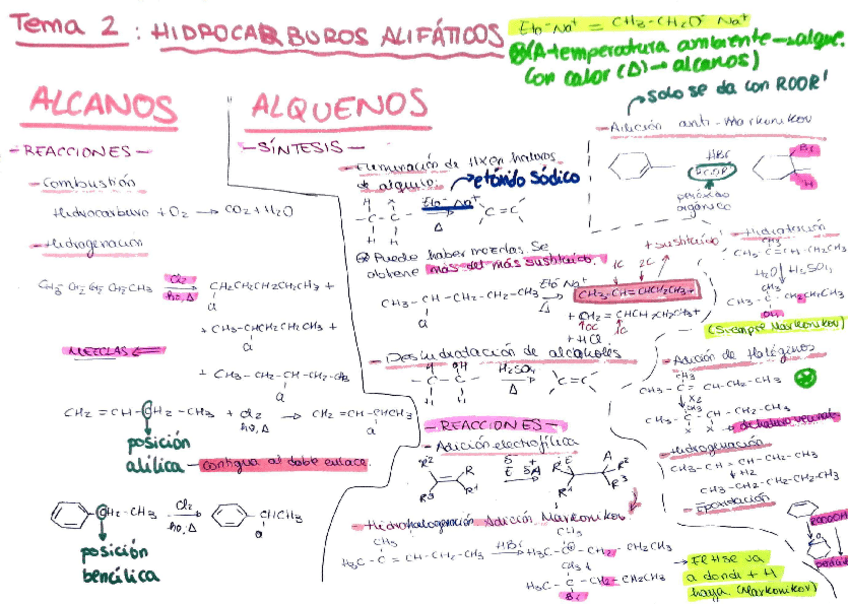 Tema 2 : HIDROCARBUROS ALIFÁTICOS
EtO⁻Na⁺ = CH3-CH2O⁻ Na⁺
(A temperatura ambiente → alque.
con calor (Δ) → alcanos)
ALCANOS
-REACCIONES-
-Combustión
Hidrocarburo + O2 → CO2 + H2O
CH3-CH2-CH2-CH2CH3 Cl2 hν,Δ CH2CH2CH2CH2CH3 +
Cl
+ CH3-CHCH2CH2CH3 +
Cl
MEZCLAS
+ CH3-CH2-CH-CH2-CH3
Cl
CH2=CH-CH2-CH3 + Cl2 hν,Δ → CH2=CH-CHCH3
Cl
posición
alílica - contigua al doble enlace.
CH2-CH3 Cl2 hν,Δ CHCH3
Cl
posición
bencílica
ALQUENOS
-SÍNTESIS-
-Eliminación de HX en haluros
de alquilo:
etóxido sódico
H X
-C-C- EtO⁻Na⁺ Δ C=C
H H
Puede haber mezclas. Se
obtiene más del más sustituido.
+ sustituido
1C 2C
CH3-CH-CH2-CH2-CH3 EtO⁻Na⁺ Δ CH3-CH=CHCH2CH3 +
Cl
+ HCl
-Deshidratación de alcoholes
H OH
-C-C- H2SO4 Δ C=C
-REACCIONES-
-Adición electrofílica
R² R R³ R¹ δ+ E A R² E A R³ R R¹
-Hidrohalogenación Adición Markonikov
CH3
H3C-C=CH-CH2-CH3 HBr H3C-C-CH2-CH2CH3
CH3
H3C-C-CH2-CH2CH3
Br
→ El H se va
a donde + H
haya. (Markonikov)
→ solo se da con ROOR'
-Adición anti-Markonikov
HBr
ROOR'
Br
H
peróxido
orgánico
-Hidratación
CH3
CH3-C=CH-CH2CH3
H2O H2SO4
CH3
CH3-C-CH2CH2CH3
OH
(Siempre Markonikov)
-Adición de Halógenos
CH3
CH3-C=CH-CH2-CH3
X2
CH3
CH3-C-CH-CH2-CH3
X X
-Hidrogenación
CH3-CH=CH-CH2-CH3
+ H2
CH3-CH2-CH2-CH2-CH3
-Epoxidación
RCOOOH
O